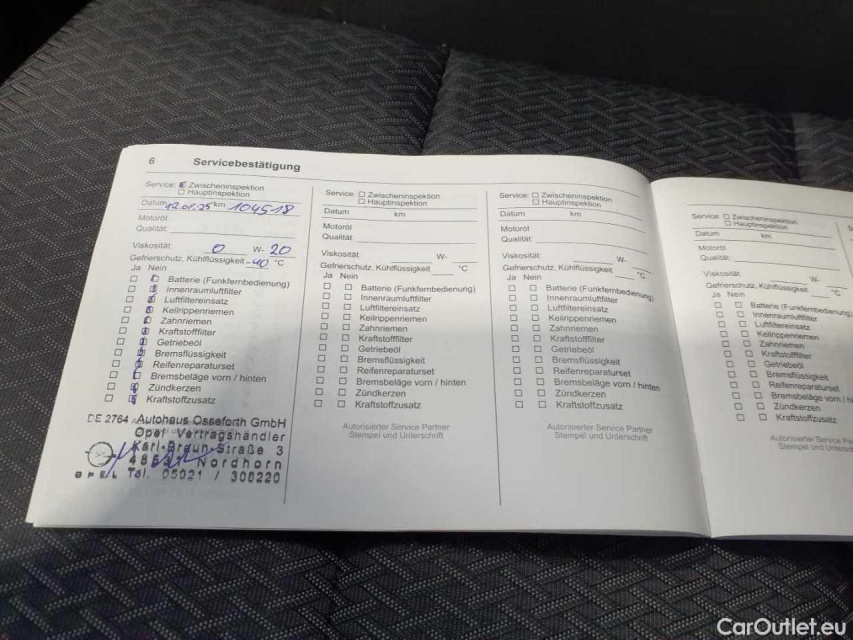 6 Servicebestätigung
Service: Zwischeninspektion
Hauptinspektion
Datum 12.01.25 km 104518
Motoröl
Qualität:
Viskosität: 0 W- 20
Gefrierschutz, Kühlflüssigkeit -40 °C
Ja Nein
Batterie (Funkfernbedienung)
Innenraumluftfilter
Luftfiltereinsatz
Keilrippenriemen
Zahnriemen
Kraftstofffilter
Getriebeöl
Bremsflüssigkeit
Reifenreparaturset
Bremsbeläge vorn / hinten
Zündkerzen
Kraftstoffzusatz
DE 2764 Autohaus Osseforth GmbH
Opel Vertragshändler
Karl-Braun-Straße 3
Nordhorn
OPEL Tel. 05921 / 308220
Service: Zwischeninspektion
Hauptinspektion
Datum km
Motoröl
Qualität:
Viskosität: W-
Gefrierschutz, Kühlflüssigkeit °C
Ja Nein
Batterie (Funkfernbedienung)
Innenraumluftfilter
Luftfiltereinsatz
Keilrippenriemen
Zahnriemen
Kraftstofffilter
Getriebeöl
Bremsflüssigkeit
Reifenreparaturset
Bremsbeläge vorn / hinten
Zündkerzen
Kraftstoffzusatz
Autorisierter Service Partner
Stempel und Unterschrift
Service: Zwischeninspektion
Hauptinspektion
Datum km
Motoröl
Qualität:
Viskosität: W-
Gefrierschutz, Kühlflüssigkeit °C
Ja Nein
Batterie (Funkfernbedienung)
Innenraumluftfilter
Luftfiltereinsatz
Keilrippenriemen
Zahnriemen
Kraftstofffilter
Getriebeöl
Bremsflüssigkeit
Reifenreparaturset
Bremsbeläge vorn / hinten
Zündkerzen
Kraftstoffzusatz
Autorisierter Service Partner
Stempel und Unterschrift
Service: Zwischeninspektion
Hauptinspektion
Datum km
Motoröl
Qualität:
Viskosität: W-
Gefrierschutz, Kühlflüssigkeit °C
Ja Nein
Batterie (Funkfernbedienung)
Innenraumluftfilter
Luftfiltereinsatz
Keilrippenriemen
Zahnriemen
Kraftstofffilter
Getriebeöl
Bremsflüssigkeit
Reifenreparaturset
Bremsbeläge vorn / h
Zündkerzen
Kraftstoffzusatz
Autorisierter Service Par
Stempel und Untersch
CarOutlet.eu